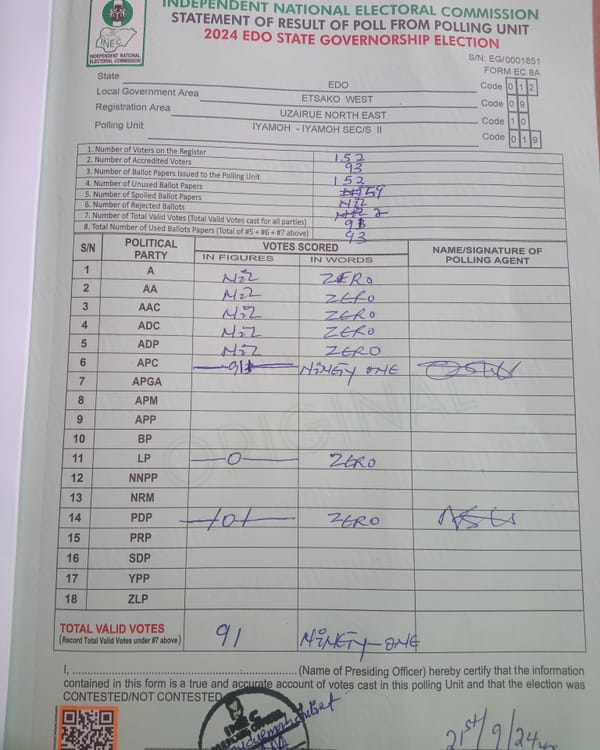 INDEPENDENT NATIONAL ELECTORAL COMMISSION
STATEMENT OF RESULT OF POLL FROM POLLING UNIT
2024 EDO STATE GOVERNORSHIP ELECTION
INEC
INDEPENDENT NATIONAL
ELECTORAL COMMISSION
S/N: EG/0001851
FORM EC 8A
State EDO Code 0 1 2
Local Government Area ETSAKO WEST Code 0 9
Registration Area UZAIRUE NORTH EAST Code 1 0
Polling Unit IYAMOH - IYAMOH SEC/S II Code 0 1 9
1. Number of Voters on the Register 152
2. Number of Accredited Voters 93
3. Number of Ballot Papers Issued to the Polling Unit 152
4. Number of Unused Ballot Papers 59
5. Number of Spoiled Ballot Papers NiL
6. Number of Rejected Ballots 2
7. Number of Total Valid Votes (Total Valid Votes cast for all parties) 91
8. Total Number of Used Ballots Papers (Total of #5 + #6 + #7 above) 93
S/N POLITICAL PARTY VOTES SCORED NAME/SIGNATURE OF POLLING AGENT
IN FIGURES IN WORDS
1 A NiL ZERO
2 AA NiL ZERO
3 AAC NiL ZERO
4 ADC NiL ZERO
5 ADP NiL ZERO
6 APC 91 NiNETY ONE
7 APGA
8 APM
9 APP
10 BP
11 LP 0 ZERO
12 NNPP
13 NRM
14 PDP 0 ZERO
15 PRP
16 SDP
17 YPP
18 ZLP
ORIGINAL
TOTAL VALID VOTES 91 NiNETY-ONE
(Record Total Valid Votes under #7 above)
I, (Name of Presiding Officer) hereby certify that the information
contained in this form is a true and accurate account of votes cast in this polling Unit and that the election was
CONTESTED/NOT CONTESTED
21st/9/24